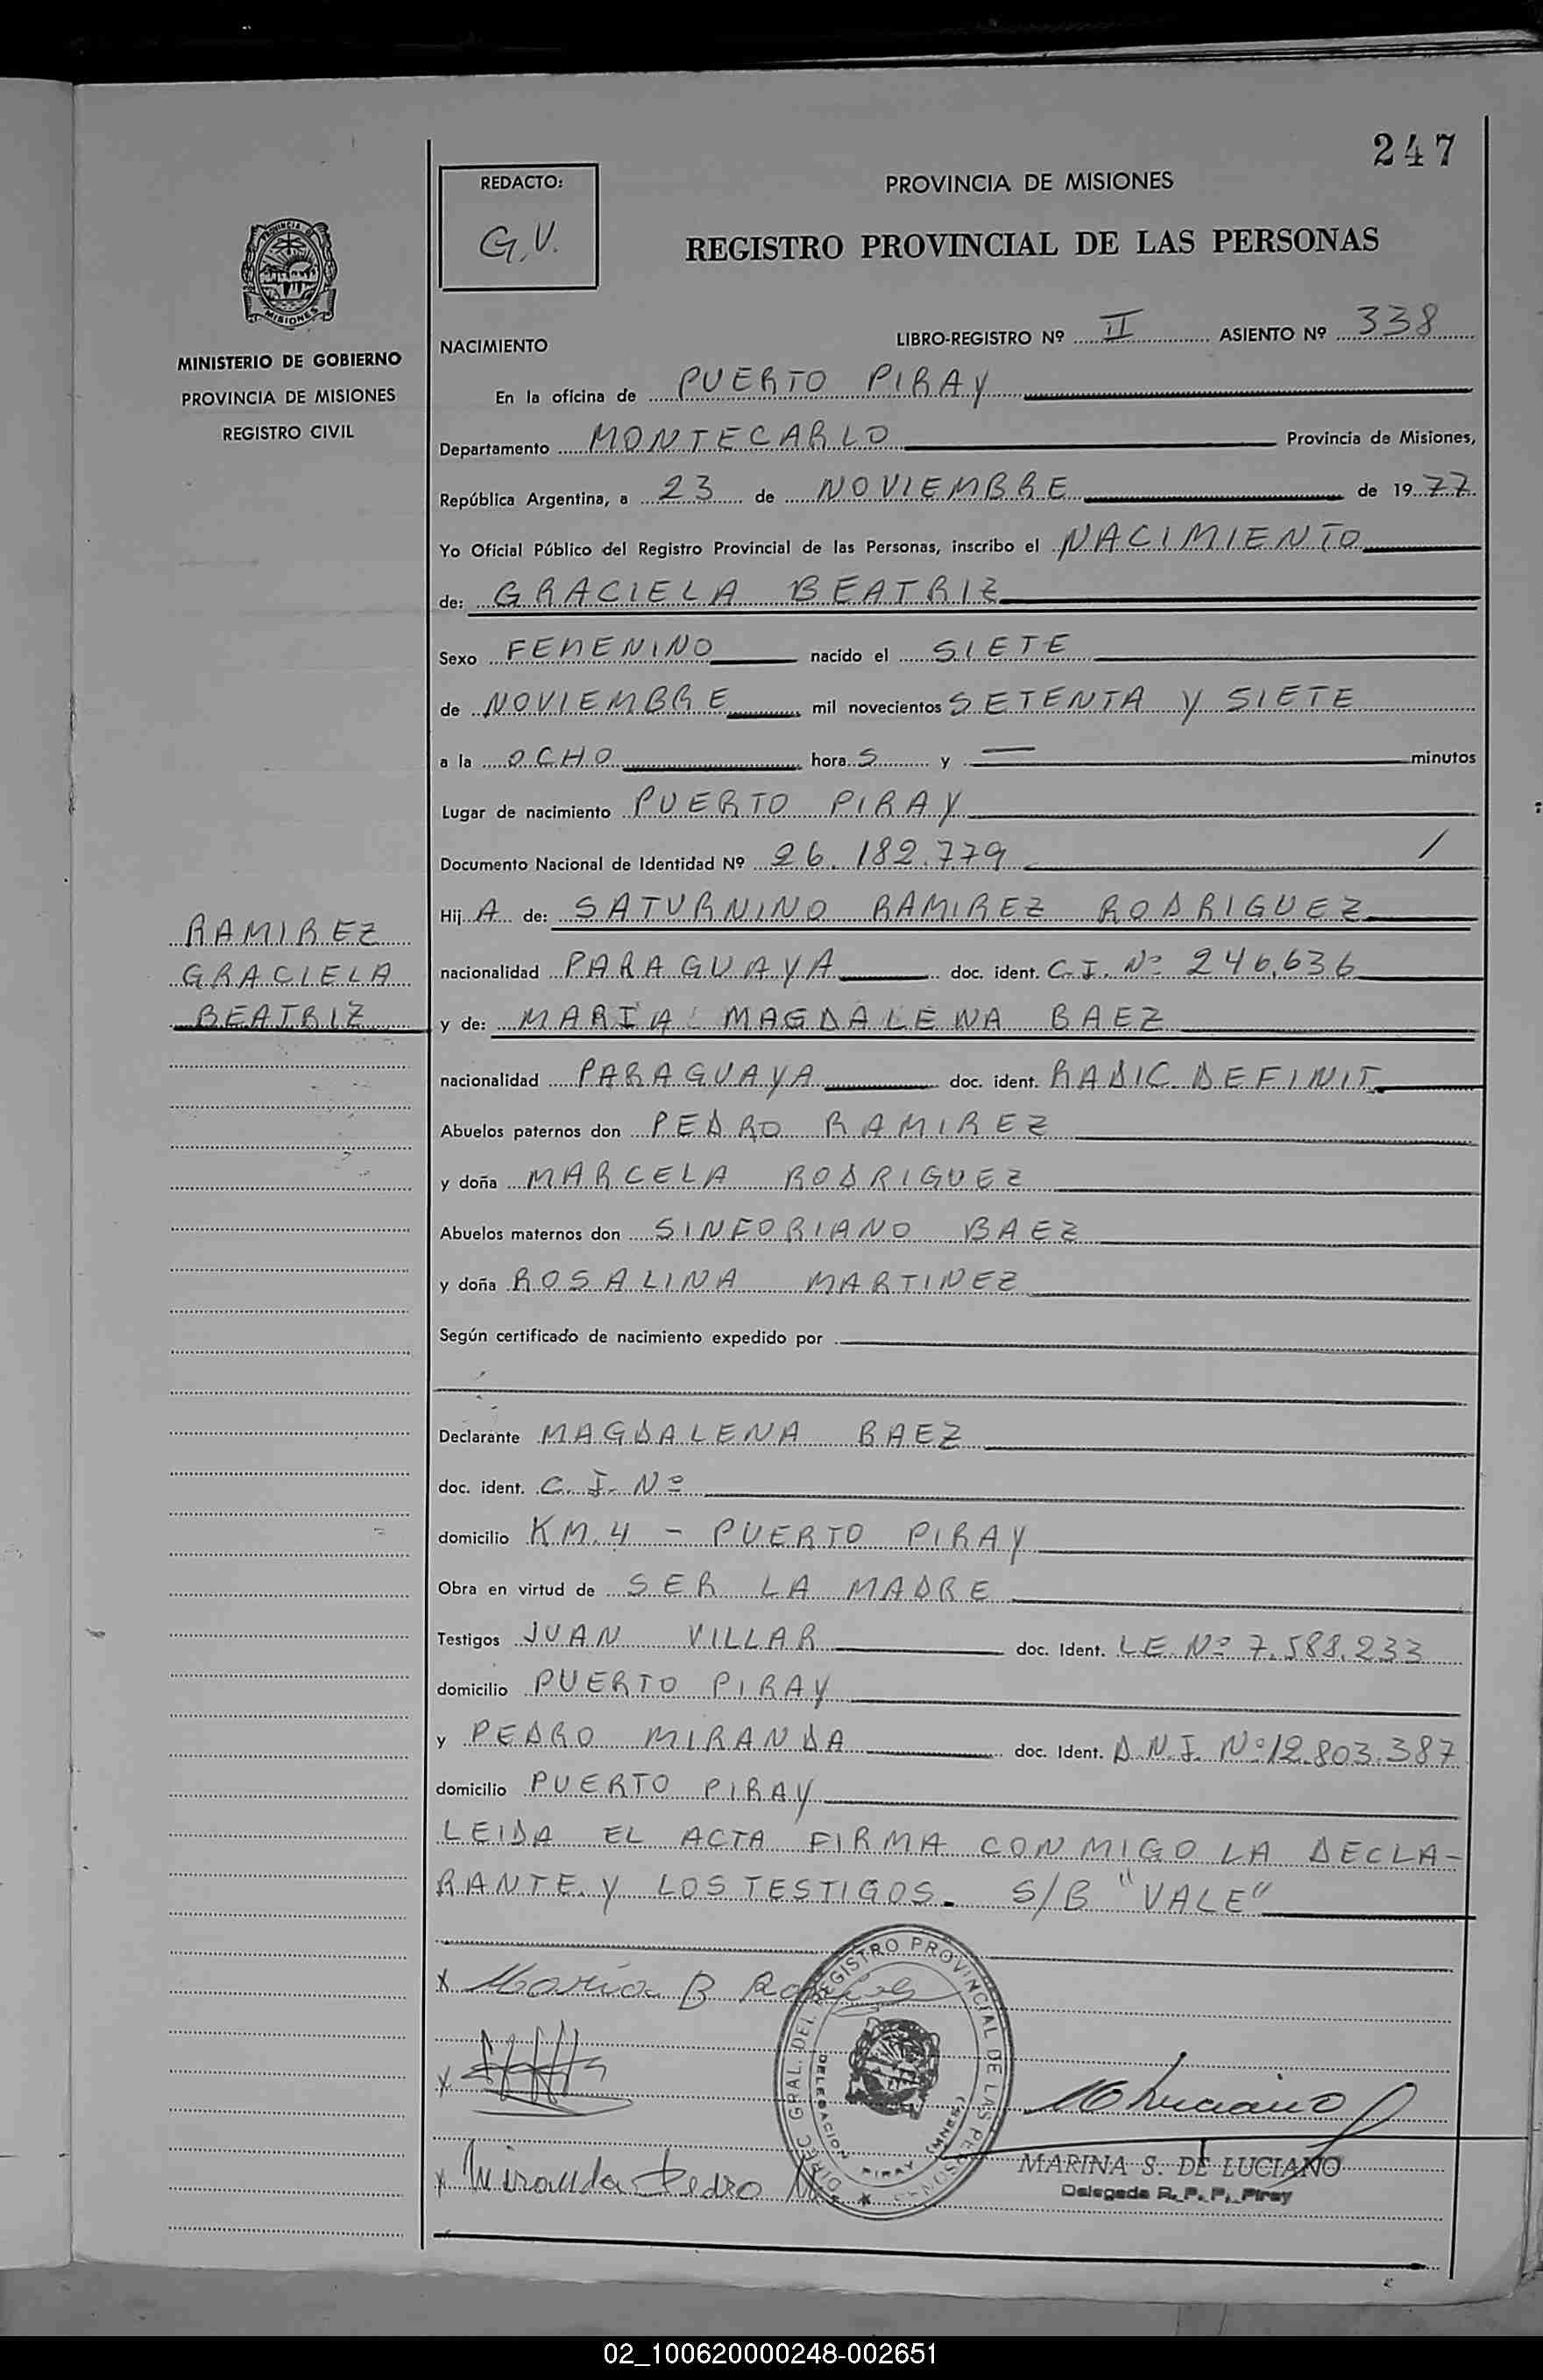 247
REDACTO:
G.V.
PROVINCIA DE MISIONES
REGISTRO PROVINCIAL DE LAS PERSONAS
PROVINCIA DE
MISIONES
MINISTERIO DE GOBIERNO
PROVINCIA DE MISIONES
REGISTRO CIVIL
NACIMIENTO LIBRO-REGISTRO Nº II ASIENTO Nº 338
En la oficina de PUERTO PIRAY
Departamento MONTECARLO Provincia de Misiones,
República Argentina, a 23 de NOVIEMBRE de 1977
Yo Oficial Público del Registro Provincial de las Personas, inscribo el NACIMIENTO
de: GRACIELA BEATRIZ
Sexo FEMENINO nacido el SIETE
de NOVIEMBRE mil novecientos SETENTA Y SIETE
a la OCHO hora S y — minutos
Lugar de nacimiento PUERTO PIRAY
Documento Nacional de Identidad Nº 26.182.779 /
Hij A de: SATURNINO RAMIREZ RODRIGUEZ
RAMIREZ
GRACIELA
BEATRIZ
nacionalidad PARAGUAYA doc. ident. C.I. Nº 246.636
y de: MARIA MAGDALENA BAEZ
nacionalidad PARAGUAYA doc. ident. RADIC DEFINIT.
Abuelos paternos don PEDRO RAMIREZ
y doña MARCELA RODRIGUEZ
Abuelos maternos don SINFORIANO BAEZ
y doña ROSALINA MARTINEZ
Según certificado de nacimiento expedido por
Declarante MAGDALENA BAEZ
doc. ident. C.I. Nº
domicilio KM.4 - PUERTO PIRAY
Obra en virtud de SER LA MADRE
Testigos JUAN VILLAR doc. Ident. LE. Nº 7.588.233
domicilio PUERTO PIRAY
y PEDRO MIRANDA doc. Ident. D.N.I. Nº 12.803.387
domicilio PUERTO PIRAY
LEIDA EL ACTA FIRMA CONMIGO LA DECLA-
RANTE Y LOS TESTIGOS. S/B "VALE"
x Maria B
x
x Miranda Pedro
DIREC. GRAL. DEL REGISTRO PROVINCIAL DE LAS PERSONAS
DELEGACION PIRAY (MNES.)
MARINA S. DE LUCIANO
Delegada R. P. P. Piray
02_100620000248-002651